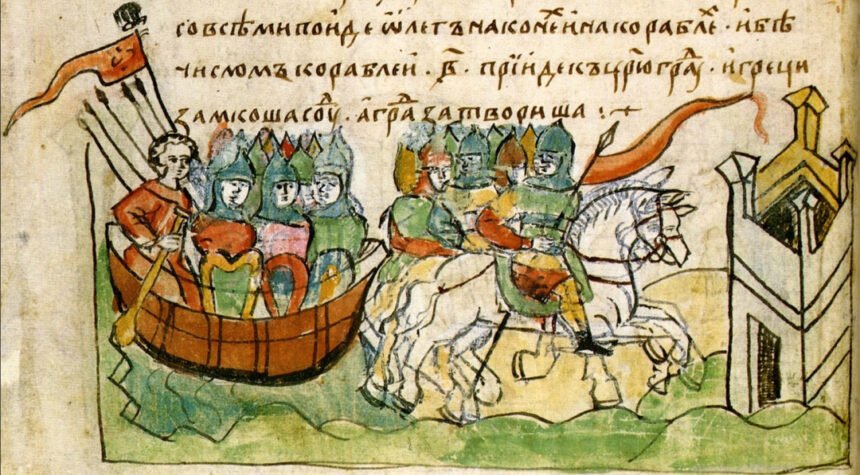 со всѣми поиде ѡлегъ на конеⷯ и на кораблеⷯ · и бѣ
числомъ кораблеи · в҃ · прїиде къ цр҃югра҃ⷣу · и греци
замкоша соуⷣ · а граⷣ затвориша :~